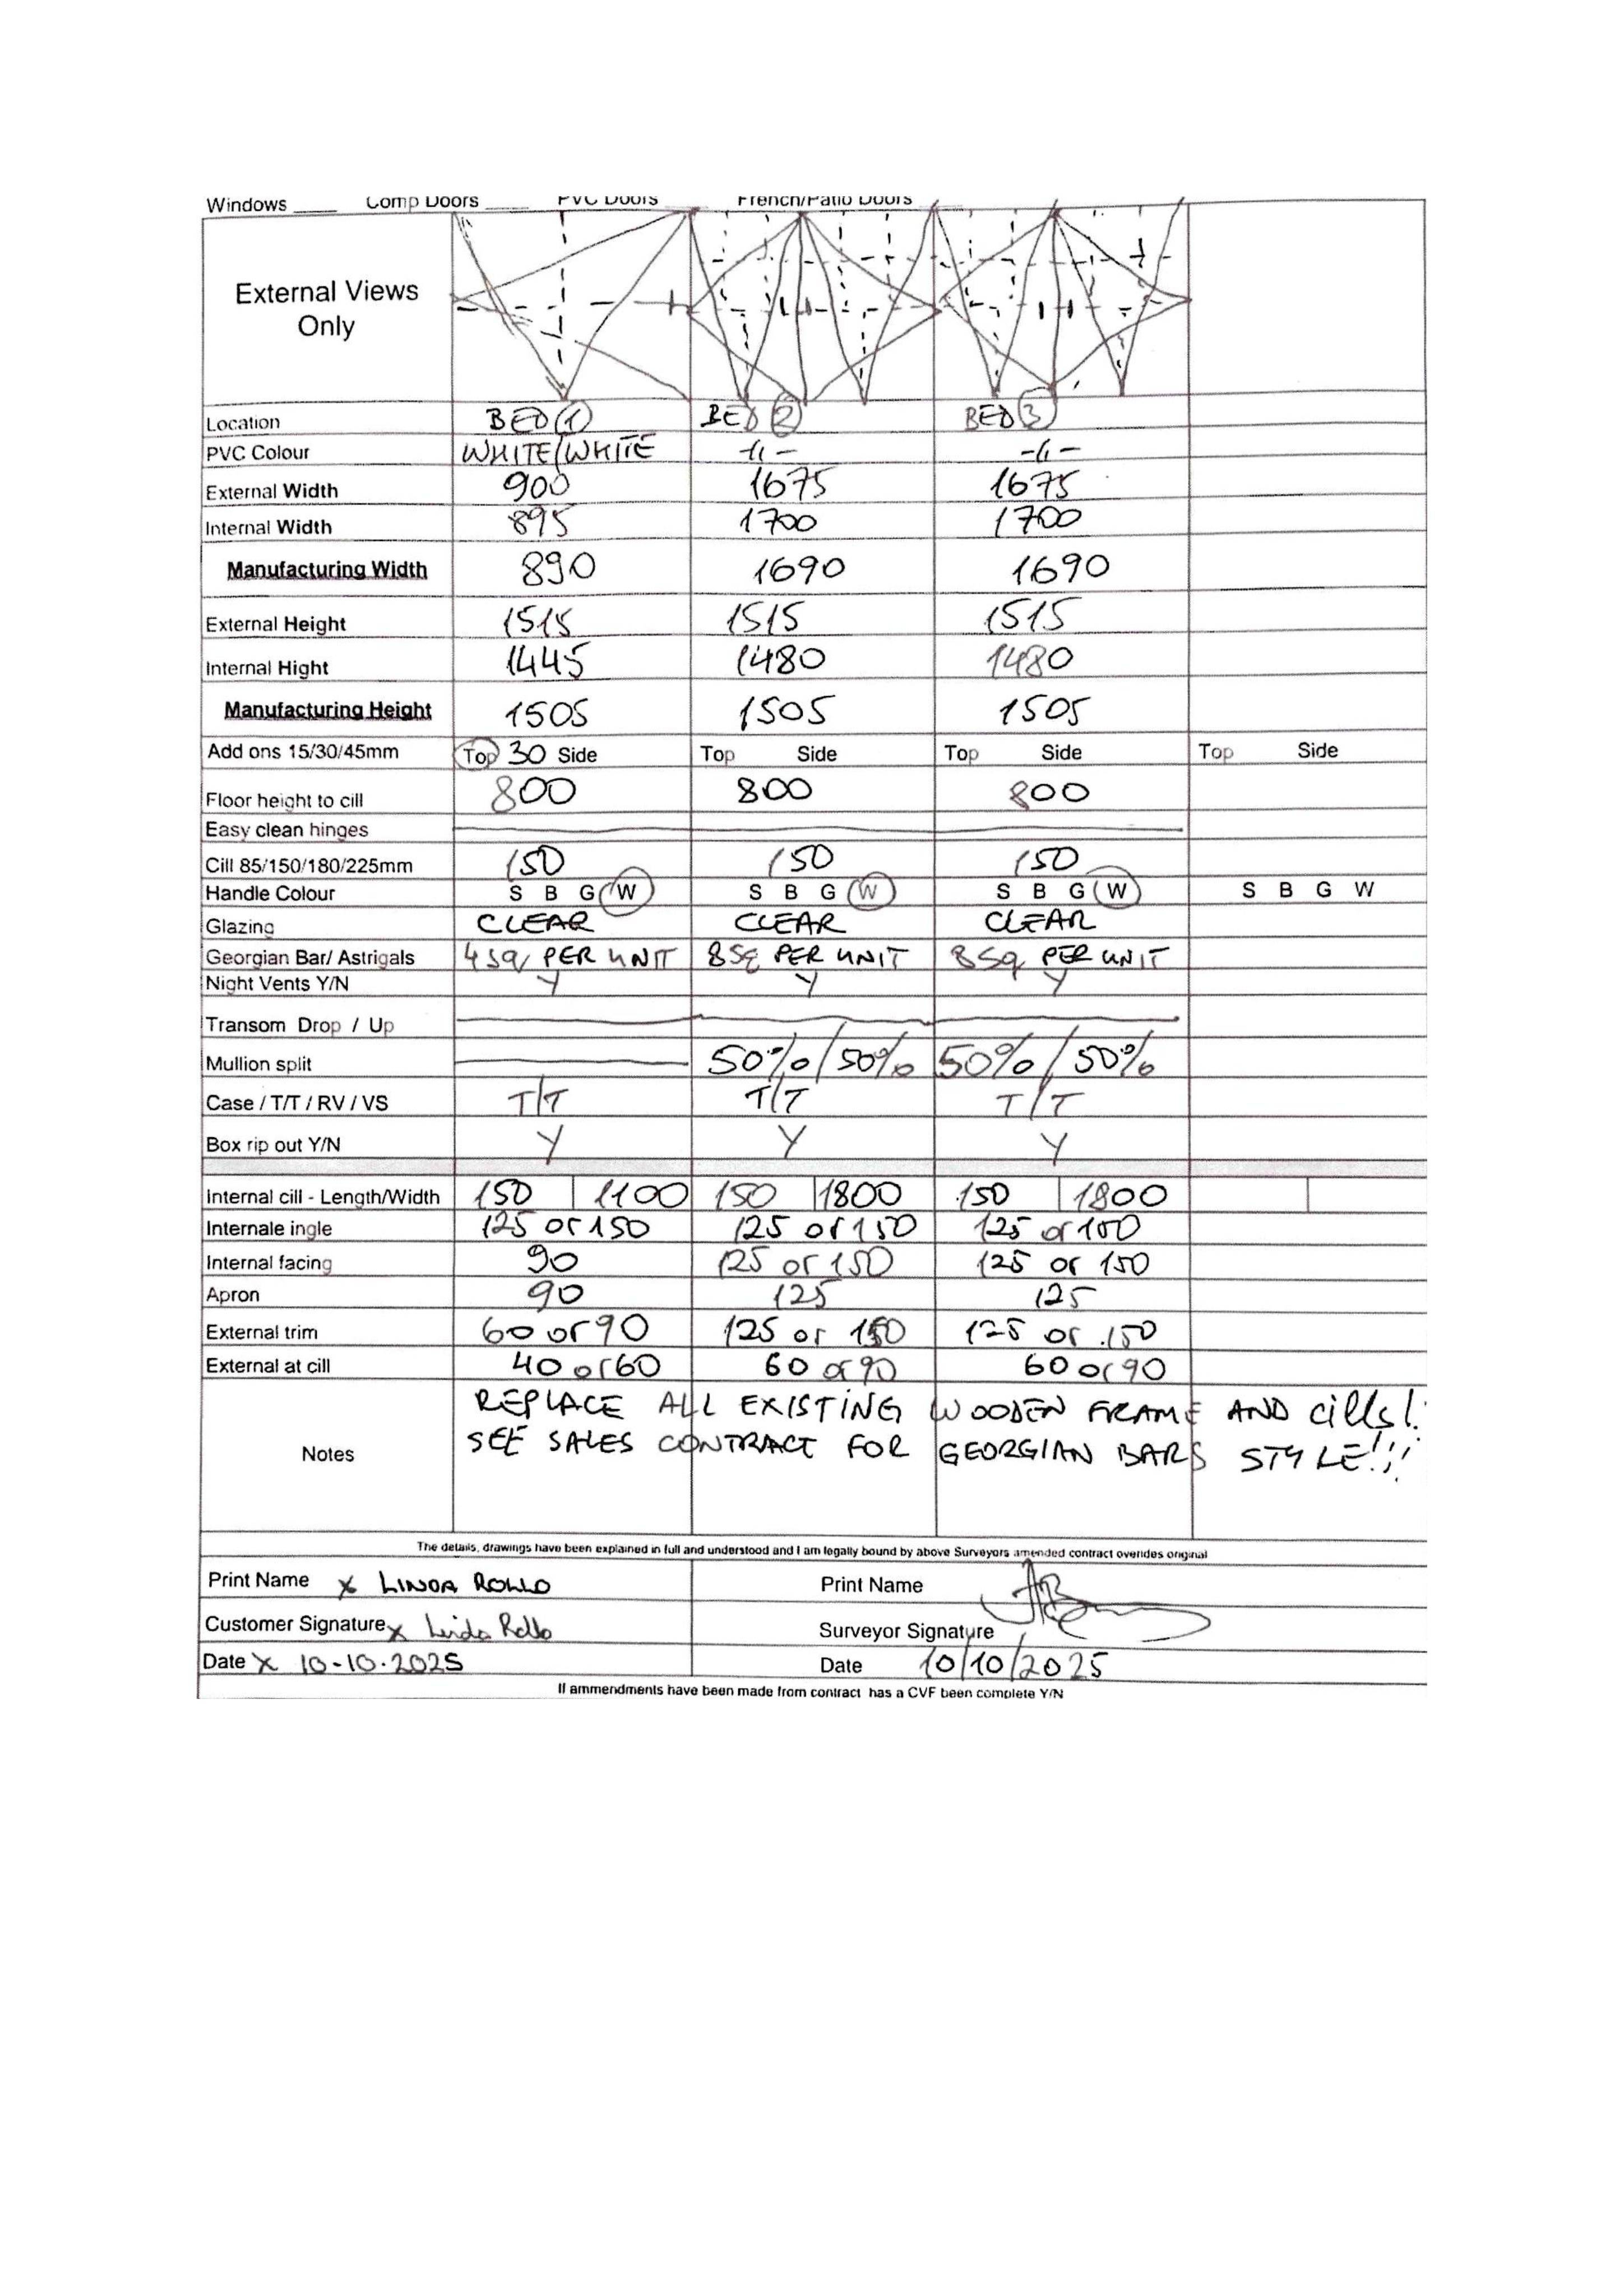 Windows ____ Comp Doors ____ PVC Doors ____ French/Patio Doors
External Views
Only
Location BED 1 BED 2 BED 3
PVC Colour WHITE/WHITE -11- -11-
External Width 900 1675 1675
Internal Width 895 1700 1700
Manufacturing Width 890 1690 1690
External Height 1515 1515 1515
Internal Hight 1445 1480 1480
Manufacturing Height 1505 1505 1505
Add ons 15/30/45mm Top 30 Side Top Side Top Side Top Side
Floor height to cill 800 800 800
Easy clean hinges
Cill 85/150/180/225mm 150 150 150
Handle Colour S B G W S B G W S B G W S B G W
Glazing CLEAR CLEAR CLEAR
Georgian Bar/ Astrigals 4 sq PER UNIT 8 sq PER UNIT 8 sq PER UNIT
Night Vents Y/N Y Y Y
Transom Drop / Up
Mullion split 50%/50% 50%/50%
Case / T/T / RV / VS T/T T/T T/T
Box rip out Y/N Y Y Y
Internal cill - Length/Width 150 1100 150 1800 150 1800
Internale ingle 125 or 150 125 or 150 125 or
Internal facing 90 125 or 150 125 or 150
Apron 90 125 125
External trim 60 or 90 125 or 150 125 or 150
External at cill 40 or 60 60 or 90 60 or 90
REPLACE ALL EXISTING WOODEN FRAME AND cills!
Notes SEE SALES CONTRACT FOR GEORGIAN BARS STYLE!!!
The details, drawings have been explained in full and understood and I am legally bound by above Surveyors amended contract overides original
Print Name x LINDA ROLLO Print Name
Customer Signature x Linda Rollo Surveyor Signature
Date x 10-10-2025 Date 10/10/2025
If ammendments have been made from contract has a CVF been complete Y/N